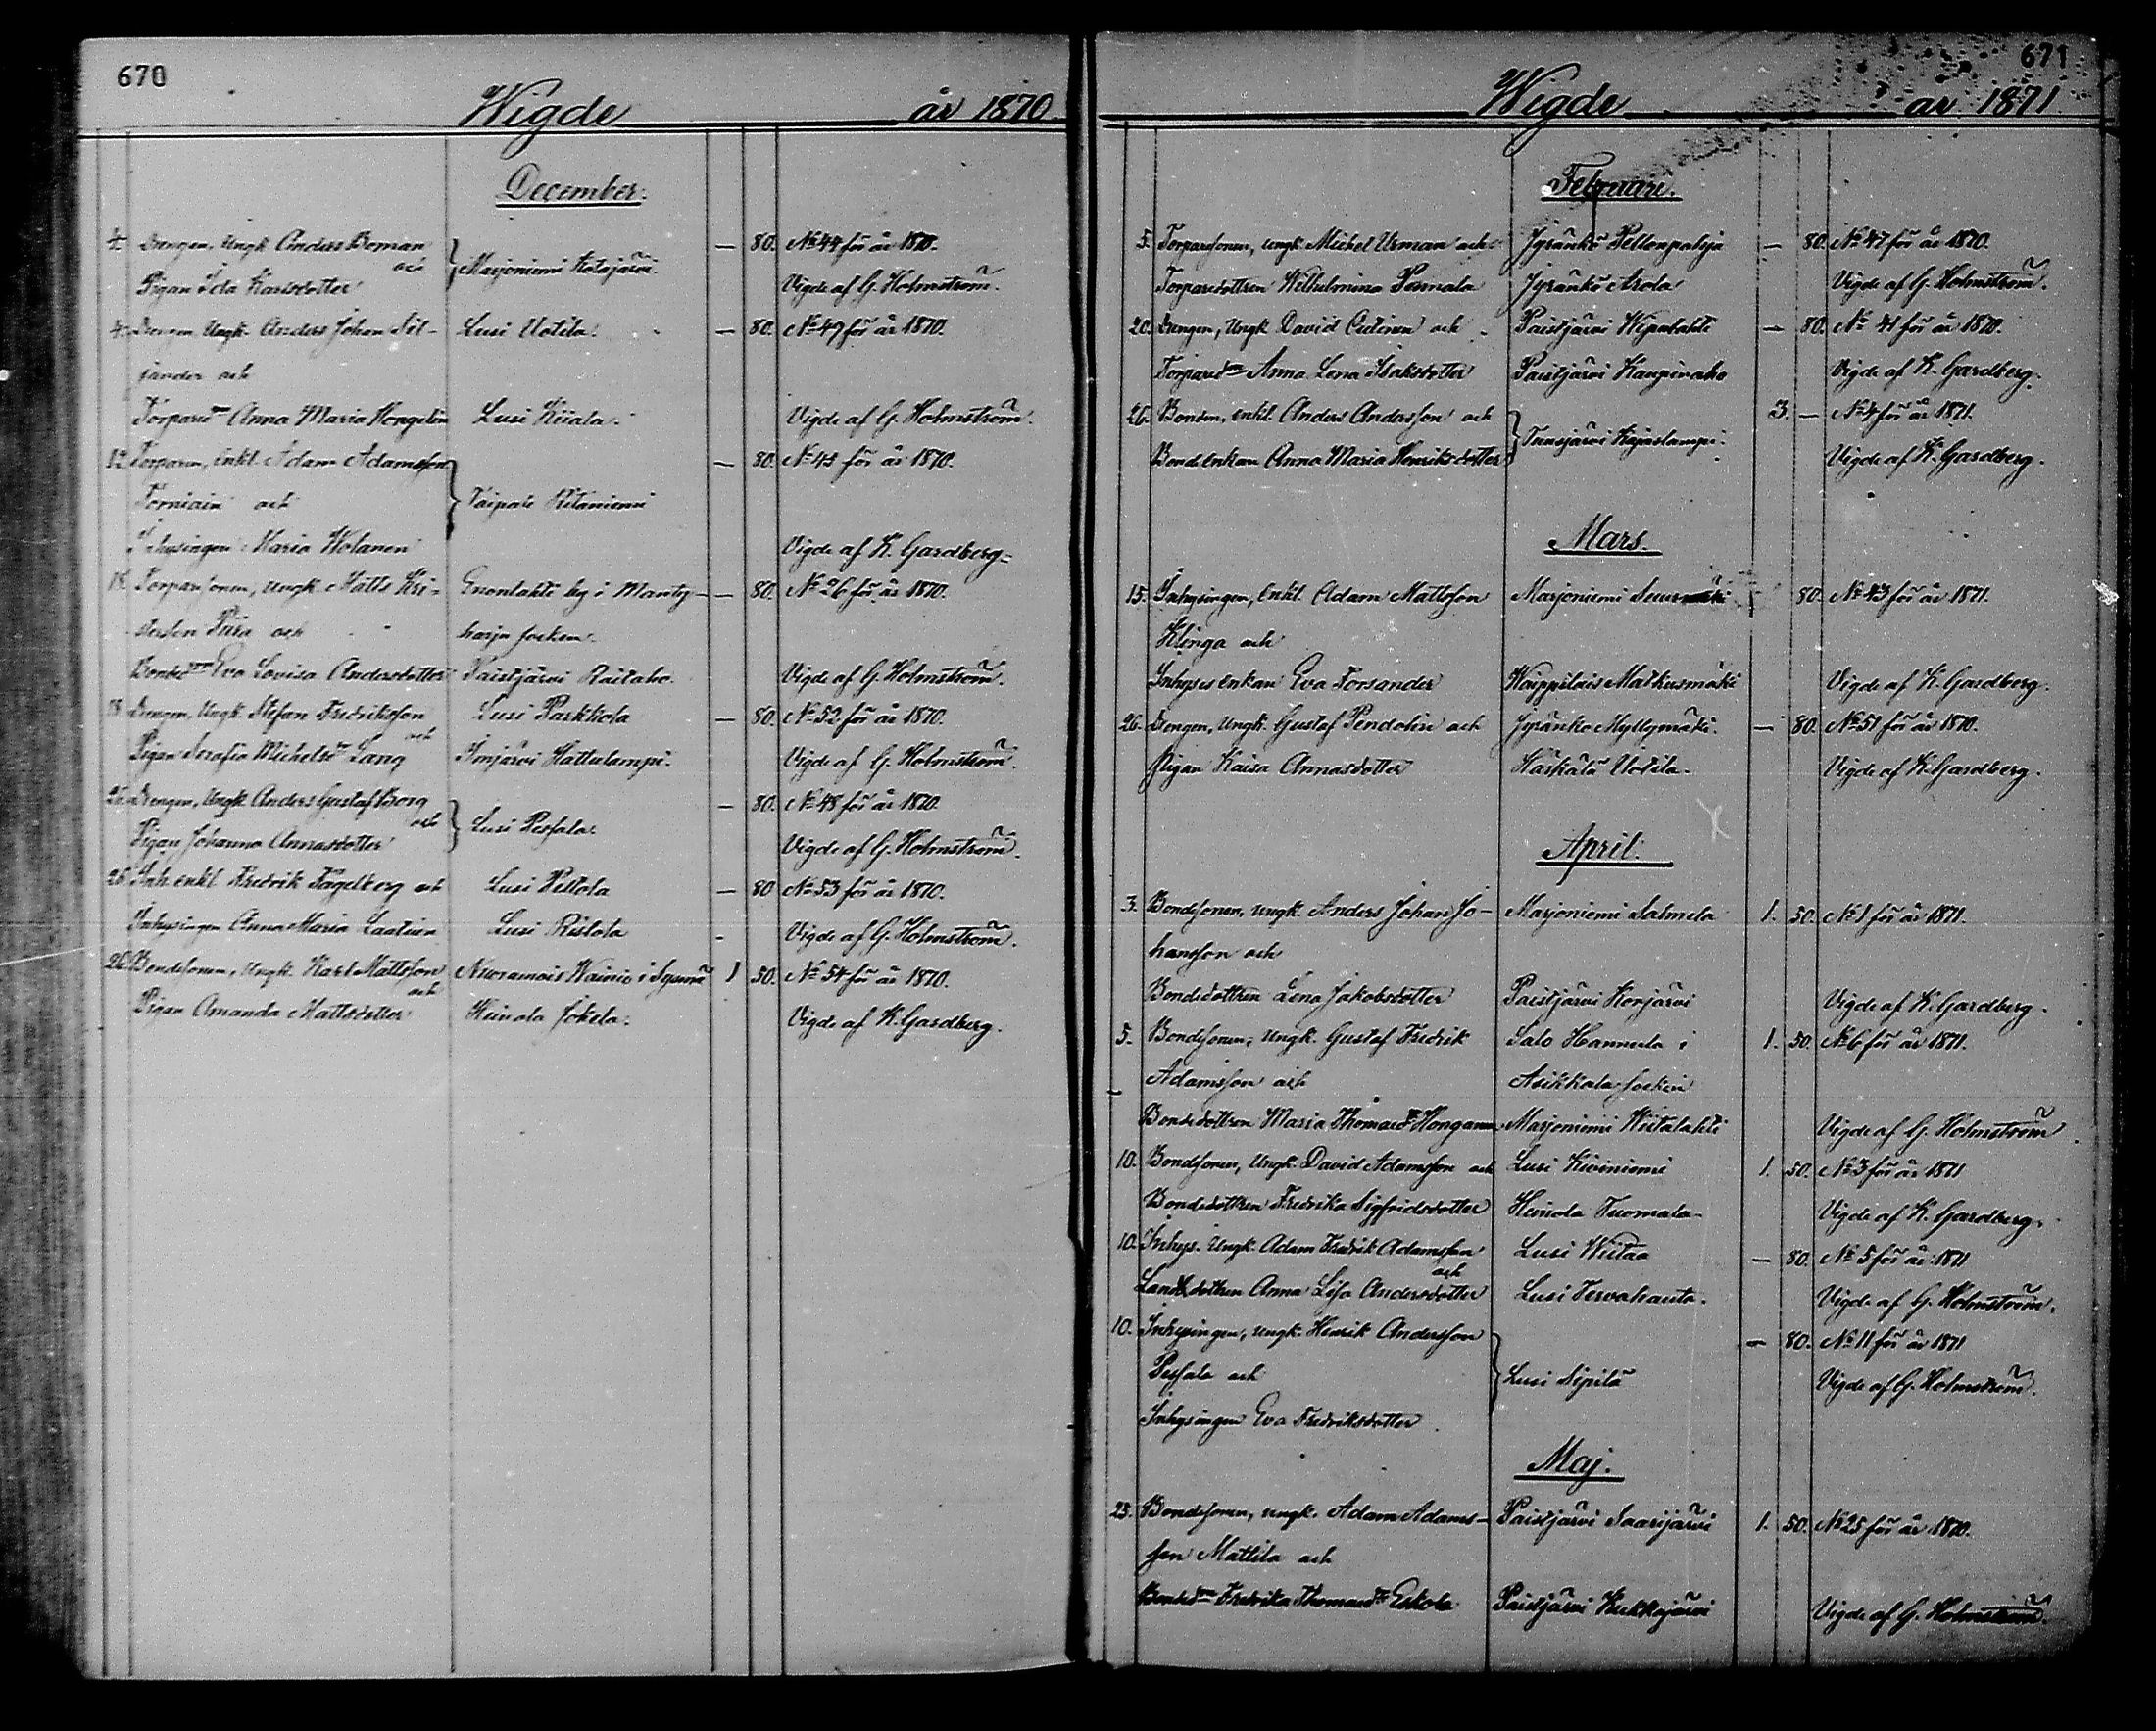 670
Wigde år 1870.
December.
4. Drengen, Ungk. Anders Boman — 80. No 44 för år 1870.
och Marjoniemi Kotajärvi.
Pigan Ida Karlsdotter Vigde af G. Holmström.
4. Drengen, Ungk. Anders Johan Sil- Lusi Uotila. — 80. No 47 för år 1870.
jander och
Torpared:r Anna Maria Hongelin Lusi Kiiala. Vigde af G. Holmström.
12. Torparen, Enkl. Adam Adamsson — 80. No 45 för år 1870.
Torniain och Taipale Ritaniemi
Inhysingen Maria Wolanen Vigde af K. Gardberg.
18. Torparsonen, Ungk. Matts Kri- Enonlahti by i Mänty- — 80. No 26 för år 1870.
stersson Piira och harju socken.
Bonded:ren Eva Lovisa Andersdotter Paistjärvi Raitaho. Vigde af G. Holmström.
18. Drengen, Ungk. Stefan Fredriksson Lusi Parkkola — 80. No 52 för år 1870.
och
Pigan Serafia Michelsd:r Lang Imjärvi Hattulampi. Vigde af G. Holmström.
26. Drengen, Ungk. Anders Gustaf Borg — 80. No 48 för år 1870.
och Lusi Pessala.
Pigan Johanna Annasdotter Vigde af G. Holmström.
26. Inh. enkl. Fredrik Fagelberg och Lusi Peltola — 80 No 53 för år 1870.
Inhysingen Anna Maria Laatien Lusi Ristola Vigde af G. Holmström.
26. Bondesonen, Ungk. Karl Mattsson Nuoramois Wainio i Sysmä 1 50. No 54 för år 1870.
och
Pigan Amanda Mattsdotter Heinola Jokela. Vigde af K. Gardberg.
671
Wigde år 1871
Februari.
5. Torparesonen, ungk. Michel Urman och Jyränkö Pellonpohja — 80. No 47 för år 1870.
Torparedottren Wilhelmina Pennala Jyränkö Arola Vigde af G. Holmström.
20. Drengen, Ungk. David Autinen och Paistjärvi Wiputahti — 80. No 41 för år 1870.
Torpared:ren Anna Lena Isaksdotter Paistjärvi Kaupinaho Vigde af K. Gardberg.
26. Bonden, enkl. Anders Andersson och 3. — No 4 för år 1871.
Taasjärvi Kajaslampi.
Bondeenkan Anna Maria Henriksdotter Vigde af K. Gardberg.
Mars.
15. Inhysingen, Enkl. Adam Mattsson Marjoniemi Suurmäki 80. No 43 för år 1871.
Klinga och
Inhyses enkan Eva Forsander Waippilais Markusmäki Vigde af K. Gardberg.
26. Drengen, Ungk. Gustaf Pendolin och Jyränko Myllymäki. — 80. No 51 för år 1870.
Pigan Kaisa Annasdotter Härkälä Uotila. Vigde af K. Gardberg.
April.
3. Bondesonen, ungk. Anders Johan Jo- Marjoniemi Salmela 1. 50. No 1 för år 1871.
hansson och
Bondedottren Lena Jakobsdotter Paistjärvi Konjärvi Vigde af K. Gardberg.
5. Bondesonen, Ungk. Gustaf Fredrik Salo Hannula i 1. 50. No 6 för år 1871.
Adamsson och Asikkala socken
Bondedottren Maria Thomasd:r Honganen Marjoniemi Wiitalahti Vigde af G. Holmström
10. Bondesonen, Ungk. David Adamsson och Lusi Kiviniemi 1. 50. No 3 för år 1871
Bondedottren Fredrika Sigfridsdotter Heinola Tuomala. Vigde af K. Gardberg.
10. Inhys. Ungk. Adam Fredrik Adamsson Lusi Wiitaa — 80. No 5 för år 1871
och
Landb.dottren Anna Lisa Andersdotter Lusi Tervahauta. Vigde af G. Holmström.
10. Inhysingen, ungk. Henrik Andersson — 80. No 11 för år 1871
Pessala och Lusi Sipilä Vigde af G. Holmström.
Inhysingen Eva Fredriksdotter
Maj.
23. Bondesonen, ungk. Adam Adams- Paistjärvi Saarijärvi 1. 50. No 25 för år 1870.
son Mattila och
Bonded:ren Fredrika Thomasd:r Eskola Paistjärvi Kukkajärvi Vigde af G. Holmström.